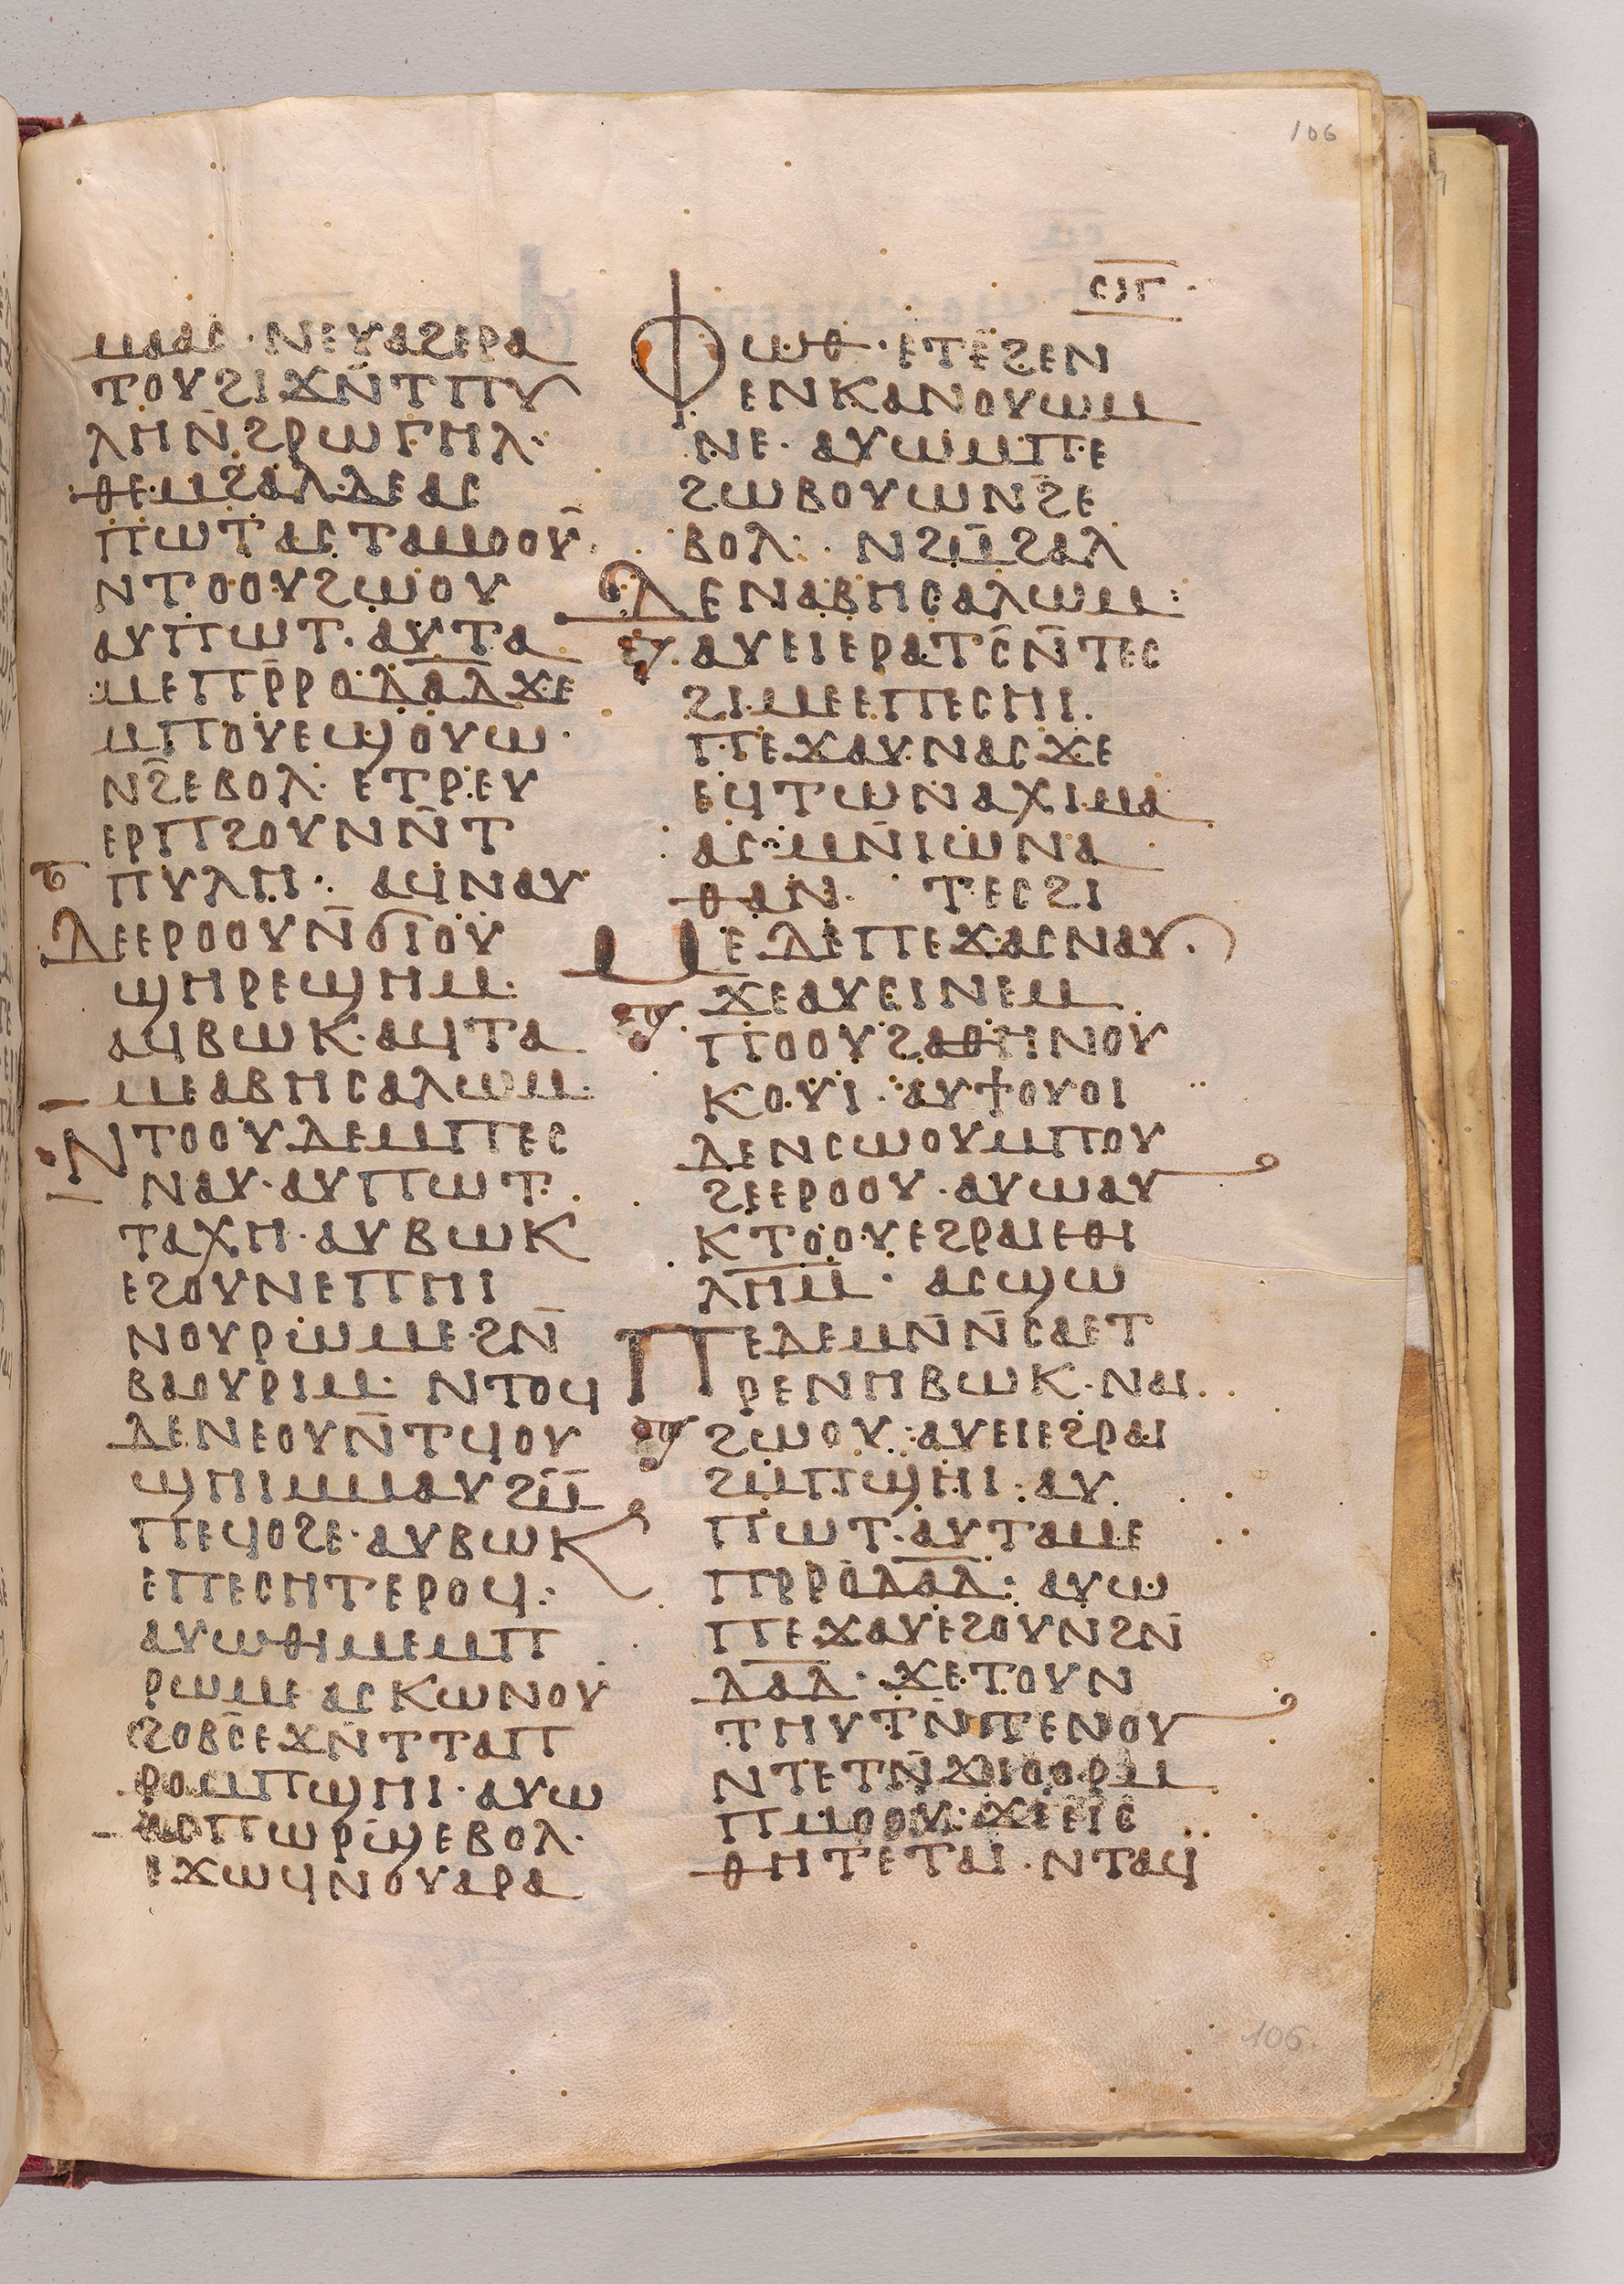 106
ⲥⲓⲅ
ⲙⲁⲁⲥ · ⲛⲉⲩⲁϩⲉⲣⲁ
ⲧⲟⲩϩⲓϫⲛ̄ⲧⲡⲩ
ⲗⲏⲛ̄ϩⲣⲱⲅⲏⲗ·
ⲑⲉⲙϩⲁⲗ·ⲇⲉⲁⲥ
ⲡⲱⲧⲁⲥⲧⲁⲙⲟⲟⲩ̄
ⲛⲧⲟⲟⲩϩⲱⲟⲩ
ⲁⲩⲡⲱⲧ·ⲁⲩⲧⲁ
ⲙⲉⲡⲣ̄ⲣⲟⲇⲁ̄ⲇϫⲉ
ⲙⲡⲟⲩⲉϣⲟⲩⲱ·
ⲛϩ̄ⲉⲃⲟⲗ· ⲉⲧⲣⲉⲩ
ⲉⲣⲡϩⲟⲩⲛⲛ̄ⲧ
ⲡⲩⲗⲏ· ⲁϥⲛⲁⲩ
ⲇⲉⲉⲣⲟⲟⲩⲛ̄ϭⲓⲟⲩ
ϣⲏⲣⲉϣⲏⲙ·
ⲁϥⲃⲱⲕ·ⲁϥⲧⲁ
ⲙⲉⲁⲃⲏⲥⲁⲗⲱⲙ·
ⲛⲧⲟⲟⲩⲇⲉⲙⲡⲉⲥ
ⲛⲁⲩ·ⲁⲩⲡⲱⲧ·
ⲧⲁⲭⲏ·ⲁⲩⲃⲱⲕ
ⲉϩⲟⲩⲛⲉⲡⲏⲓ
ⲛⲟⲩⲣⲱⲙⲉ·ϩⲛ̄
ⲃⲁⲟⲩⲣⲓⲙ· ⲛⲧⲟϥ
ⲇⲉⲛⲉⲟⲩⲛ̄ⲧϥⲟⲩ
ϣⲏⲓⲙⲙⲁⲩϩⲙ̄
ⲡⲉϥⲟϩⲉ·ⲁⲩⲃⲱⲕ
ⲉⲡⲉⲥⲏⲧⲉⲣⲟϥ:
ⲁⲩⲱⲑⲓⲙⲉⲙⲡ
ⲣⲱⲙⲉⲁⲥⲕⲱⲛⲟⲩ
ϩⲟⲃⲥ̄ⲉϫⲛ̄ⲧⲧⲁⲡ
ⲣⲟⲙⲡϣⲏⲓ·ⲁⲩⲱ
ⲁⲥⲡⲱⲣϣⲉⲃⲟⲗ·
ⲉϫⲱϥⲛⲟⲩⲁⲣⲁ
ⲫⲱⲑ·ⲉⲧⲉϩⲉⲛ
ⲉⲛⲕⲁⲛⲟⲩⲱⲙ
ⲛⲉ·ⲁⲩⲱⲙⲡⲉ
ϩⲱⲃⲟⲩⲱⲛϩⲉ
ⲃⲟⲗ: ⲛϩⲙ̄ϩⲁⲗ
ⲇⲉⲛⲁⲃⲏⲥⲁⲗⲱⲙ:
ⲁⲩⲉⲓⲉⲣⲁⲧⲥ̄ⲛ̄ⲧⲉⲥ
ϩⲓⲙⲉⲉⲡⲉⲥⲏⲓ.
ⲡⲉϫⲁⲩ·ⲛⲁⲥϫⲉ
ⲉϥⲧⲱⲛⲁⲭⲓⲙⲁ
ⲁⲥ·ⲙⲛ̄ⲓⲱⲛⲁ
ⲑⲁⲛ· ⲧⲉⲥϩⲓ
ⲙⲉⲇⲉⲡⲉϫⲁⲥⲛⲁⲩ·
ϫⲉⲁⲩⲥⲓⲛⲉⲙ
ⲡⲟⲟⲩϩⲁⲑⲏⲛⲟⲩ
ⲕⲟⲩⲓ·ⲁⲩϯⲟⲩⲟⲓ
ⲇⲉⲛⲥⲱⲟⲩⲙⲡⲟⲩ
ϩⲉⲉⲣⲟⲟⲩ·ⲁⲩⲱⲁⲩ
ⲕⲧⲟⲟⲩⲉϩⲣⲁⲓⲉⲑⲓ
ⲗ̄ⲏ̄ⲙ̄· ⲁⲥϣⲱ
ⲡⲉⲇⲉⲙⲛ̄ⲛ̄ⲥⲁⲉⲧ
ⲣⲉⲛⲏⲃⲱⲕ·ⲛⲁⲓ.
ϩⲱⲟⲩ:ⲁⲩⲉⲓⲉϩⲣⲁⲓ
ϩⲙⲡϣⲏⲓ:ⲁⲩ
ⲡⲱⲧ·ⲁⲩⲧⲁⲙⲉ
ⲡⲣⲣⲟⲇⲁ̄ⲇ: ⲁⲩⲱ
ⲡⲉϫⲁⲩⲉϩⲟⲩⲛϩⲛ̄
ⲇⲁ̄ⲇ·ϫⲉⲧⲟⲩⲛ
ⲧⲏⲩⲧⲛ̄ⲧⲉⲛⲟⲩ
ⲛⲧⲉⲧⲛ̄ϫⲓⲟⲟⲣⲙ
ⲡⲙⲟⲟⲩ:ϫⲉⲉⲓⲥ
ⲑⲏⲧⲉⲧⲁⲓ·ⲛⲧⲁϥ
106.